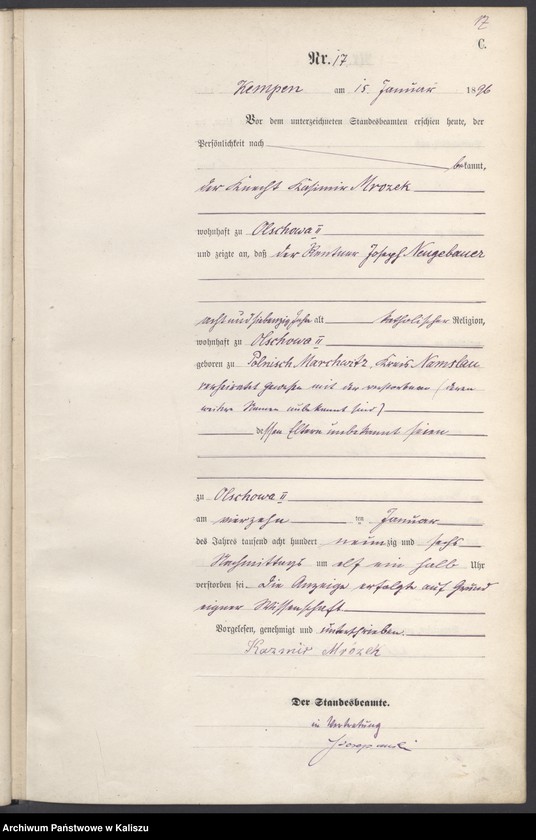 17
C.
Nr. 17
Kempen am 15. Januar 1896
Vor dem unterzeichneten Standesbeamten erschien heute, der
Persönlichkeit nach
bekannt,
der Knecht Kasimir Mrozek
wohnhaft zu Olschowa II
und zeigte an, daß der Rentner Joseph Neugebauer
acht und siebenzig Jahr alt katholischer Religion,
wohnhaft zu Olschowa II
geboren zu Polnisch Marchwitz, Kreis Namslau
verheiratet gewesen mit der verstorbenen (deren
weitere Namen unbekannt sind)
dessen Eltern unbekannt seien
zu Olschowa II
am vierzehn ten Januar
des Jahres tausend acht hundert neunzig und sechs
Nachmittags um elf ein halb Uhr
verstorben sei. Die Anzeige erfolgte auf Grund
eigner Wissenschaft.
Vorgelesen, genehmigt und unterschrieben.
Kazmir Mrozek
Der Standesbeamte.
in Vertretung
Archiwum Państwowe w Kaliszu